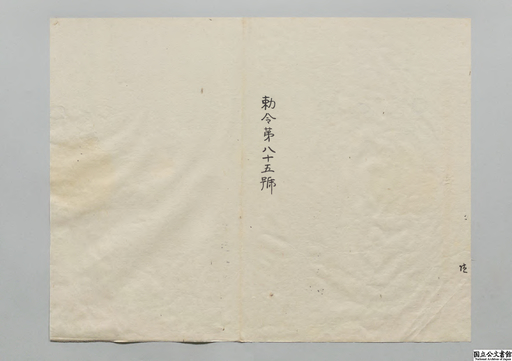 勅令第八十五號
国立公文書館
National Archives of Japan